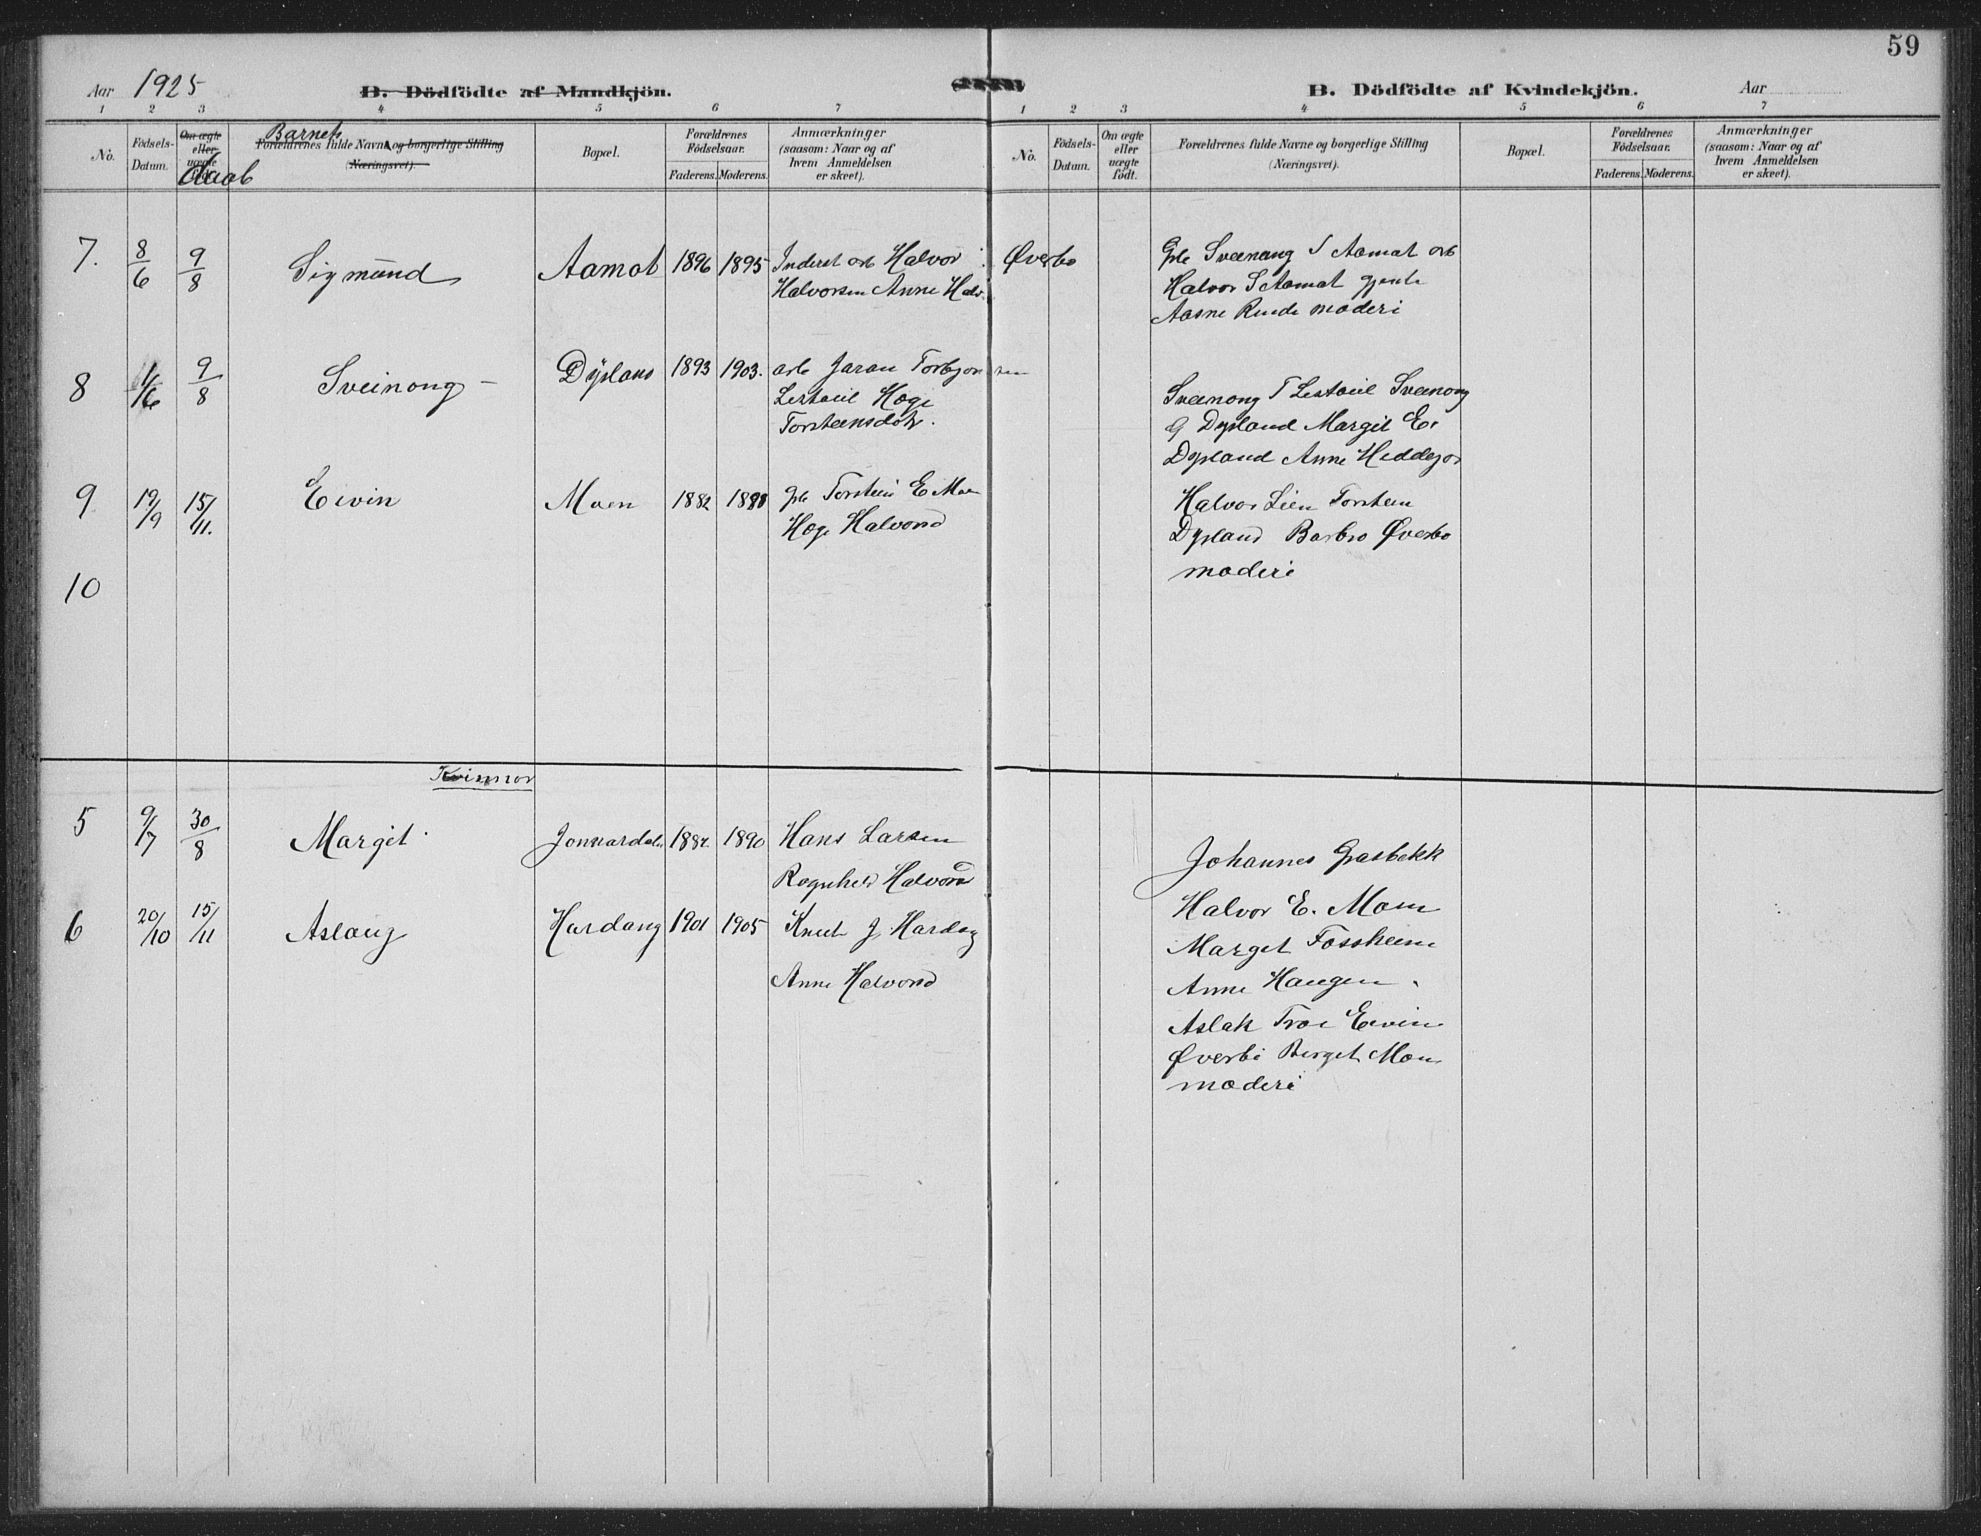 59
Aar 1925
B. Dödfödte af Mandkjön.
1 2 3 4 5 6 7
No.
Födsels-
Datum.
Om ægte
eller
uægte
Daab
Barnets
Forældrenes fulde Navne og borgerlige Stilling
(Næringsvei).
Bopæl.
Forældrenes
Födselsaar.
Faderens. Moderens.
Anmærkninger
(saasom: Naar og af
hvem Anmeldelsen
er skeet).
B. Dödfödte af Kvindekjön.
Aar
1 2 3 4 5 6 7
No.
Födsels-
Datum.
Om ægte
eller
uægte
födt.
Forældrenes fulde Navne og borgerlige Stilling
(Næringsvei).
Bopæl.
Forældrenes
Födselsaar.
Faderens. Moderens.
Anmærkninger
(saasom: Naar og af
hvem Anmeldelsen
er skeet).
7. 8/6 9/8 Sigmund Aamot 1896 1895 Inderst arb Halvor Øverbo
Halvorsen Anne Halv.
Gbr Sveinang S Aamot arb
Halvor S Aamot gjente
Aasne Rude moderi
8 /6 9/8 Sveinong - Dyrland 1893 1903. arb Jaran Torbjornsen
Lestoul Hoge
Torsteensdotr.
Sveinong T Lestoul Sveinong
G Dyrland Margit E.
Dyrland Anne Heddejor
9 19/9 15/11. Eivin Moen 1882 1888 gbr Torstein E Moen
Hoge Halvorsd
Halvor Lien Torstein
Dyrland Barbro Øverbo
moderi
10
Kvinnor
5 9/7 30/8 Margit. Jonnardalen 1882 1890 Hans Larsen
Rognheld Halvorsd
Johannes Grasbekk
Halvor E. Moen
Marget Fossheim
Anne Haugen
6 20/10 15/11 Aslaug Hardang 1901 1905 Knut J. Hardang
Anne Halvorsd
Aslak Troe Eivin
Øverbö Berget Moen
moderi